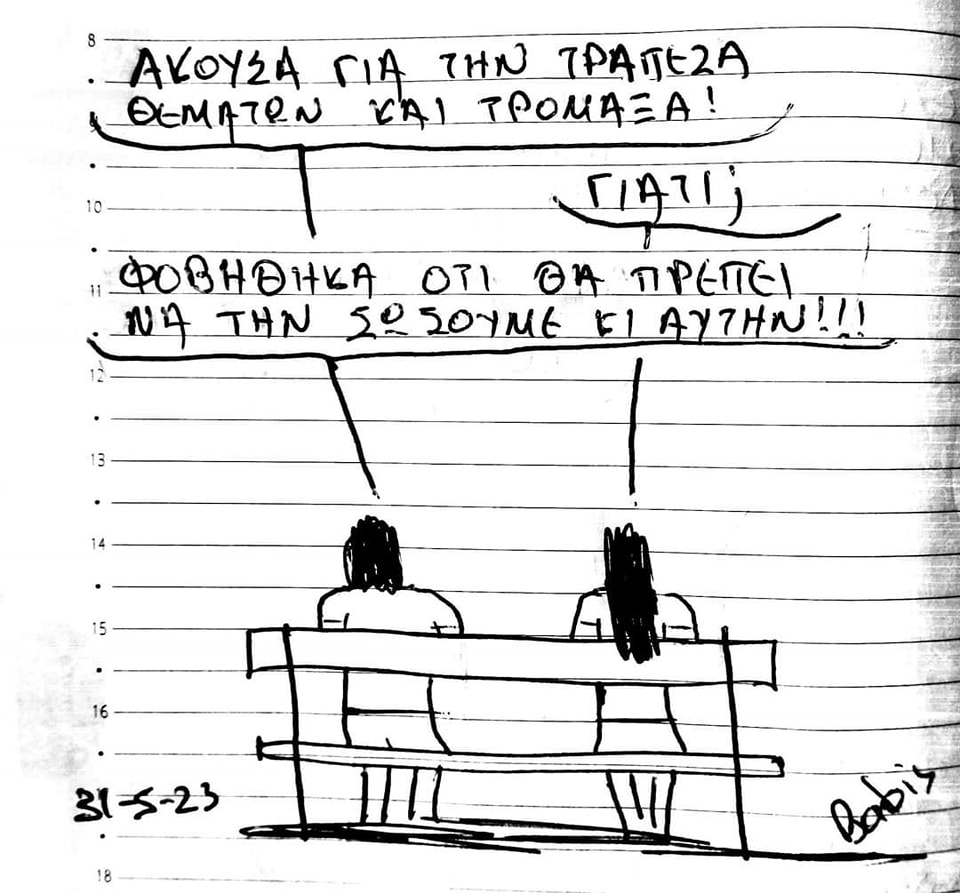 8
ΑΚΟΥΣΑ ΓΙΑ ΤΗΝ ΤΡΑΠΕΖΑ
ΘΕΜΑΤΩΝ ΚΑΙ ΤΡΟΜΑΞΑ!
ΓΙΑΤΙ;
10
ΦΟΒΗΘΗΚΑ ΟΤΙ ΘΑ ΠΡΕΠΕΙ
11
ΝΑ ΤΗΝ ΣΩΣΟΥΜΕ ΚΙ ΑΥΤΗΝ!!!
12
13
14
15
16
31-5-23
Babis
18